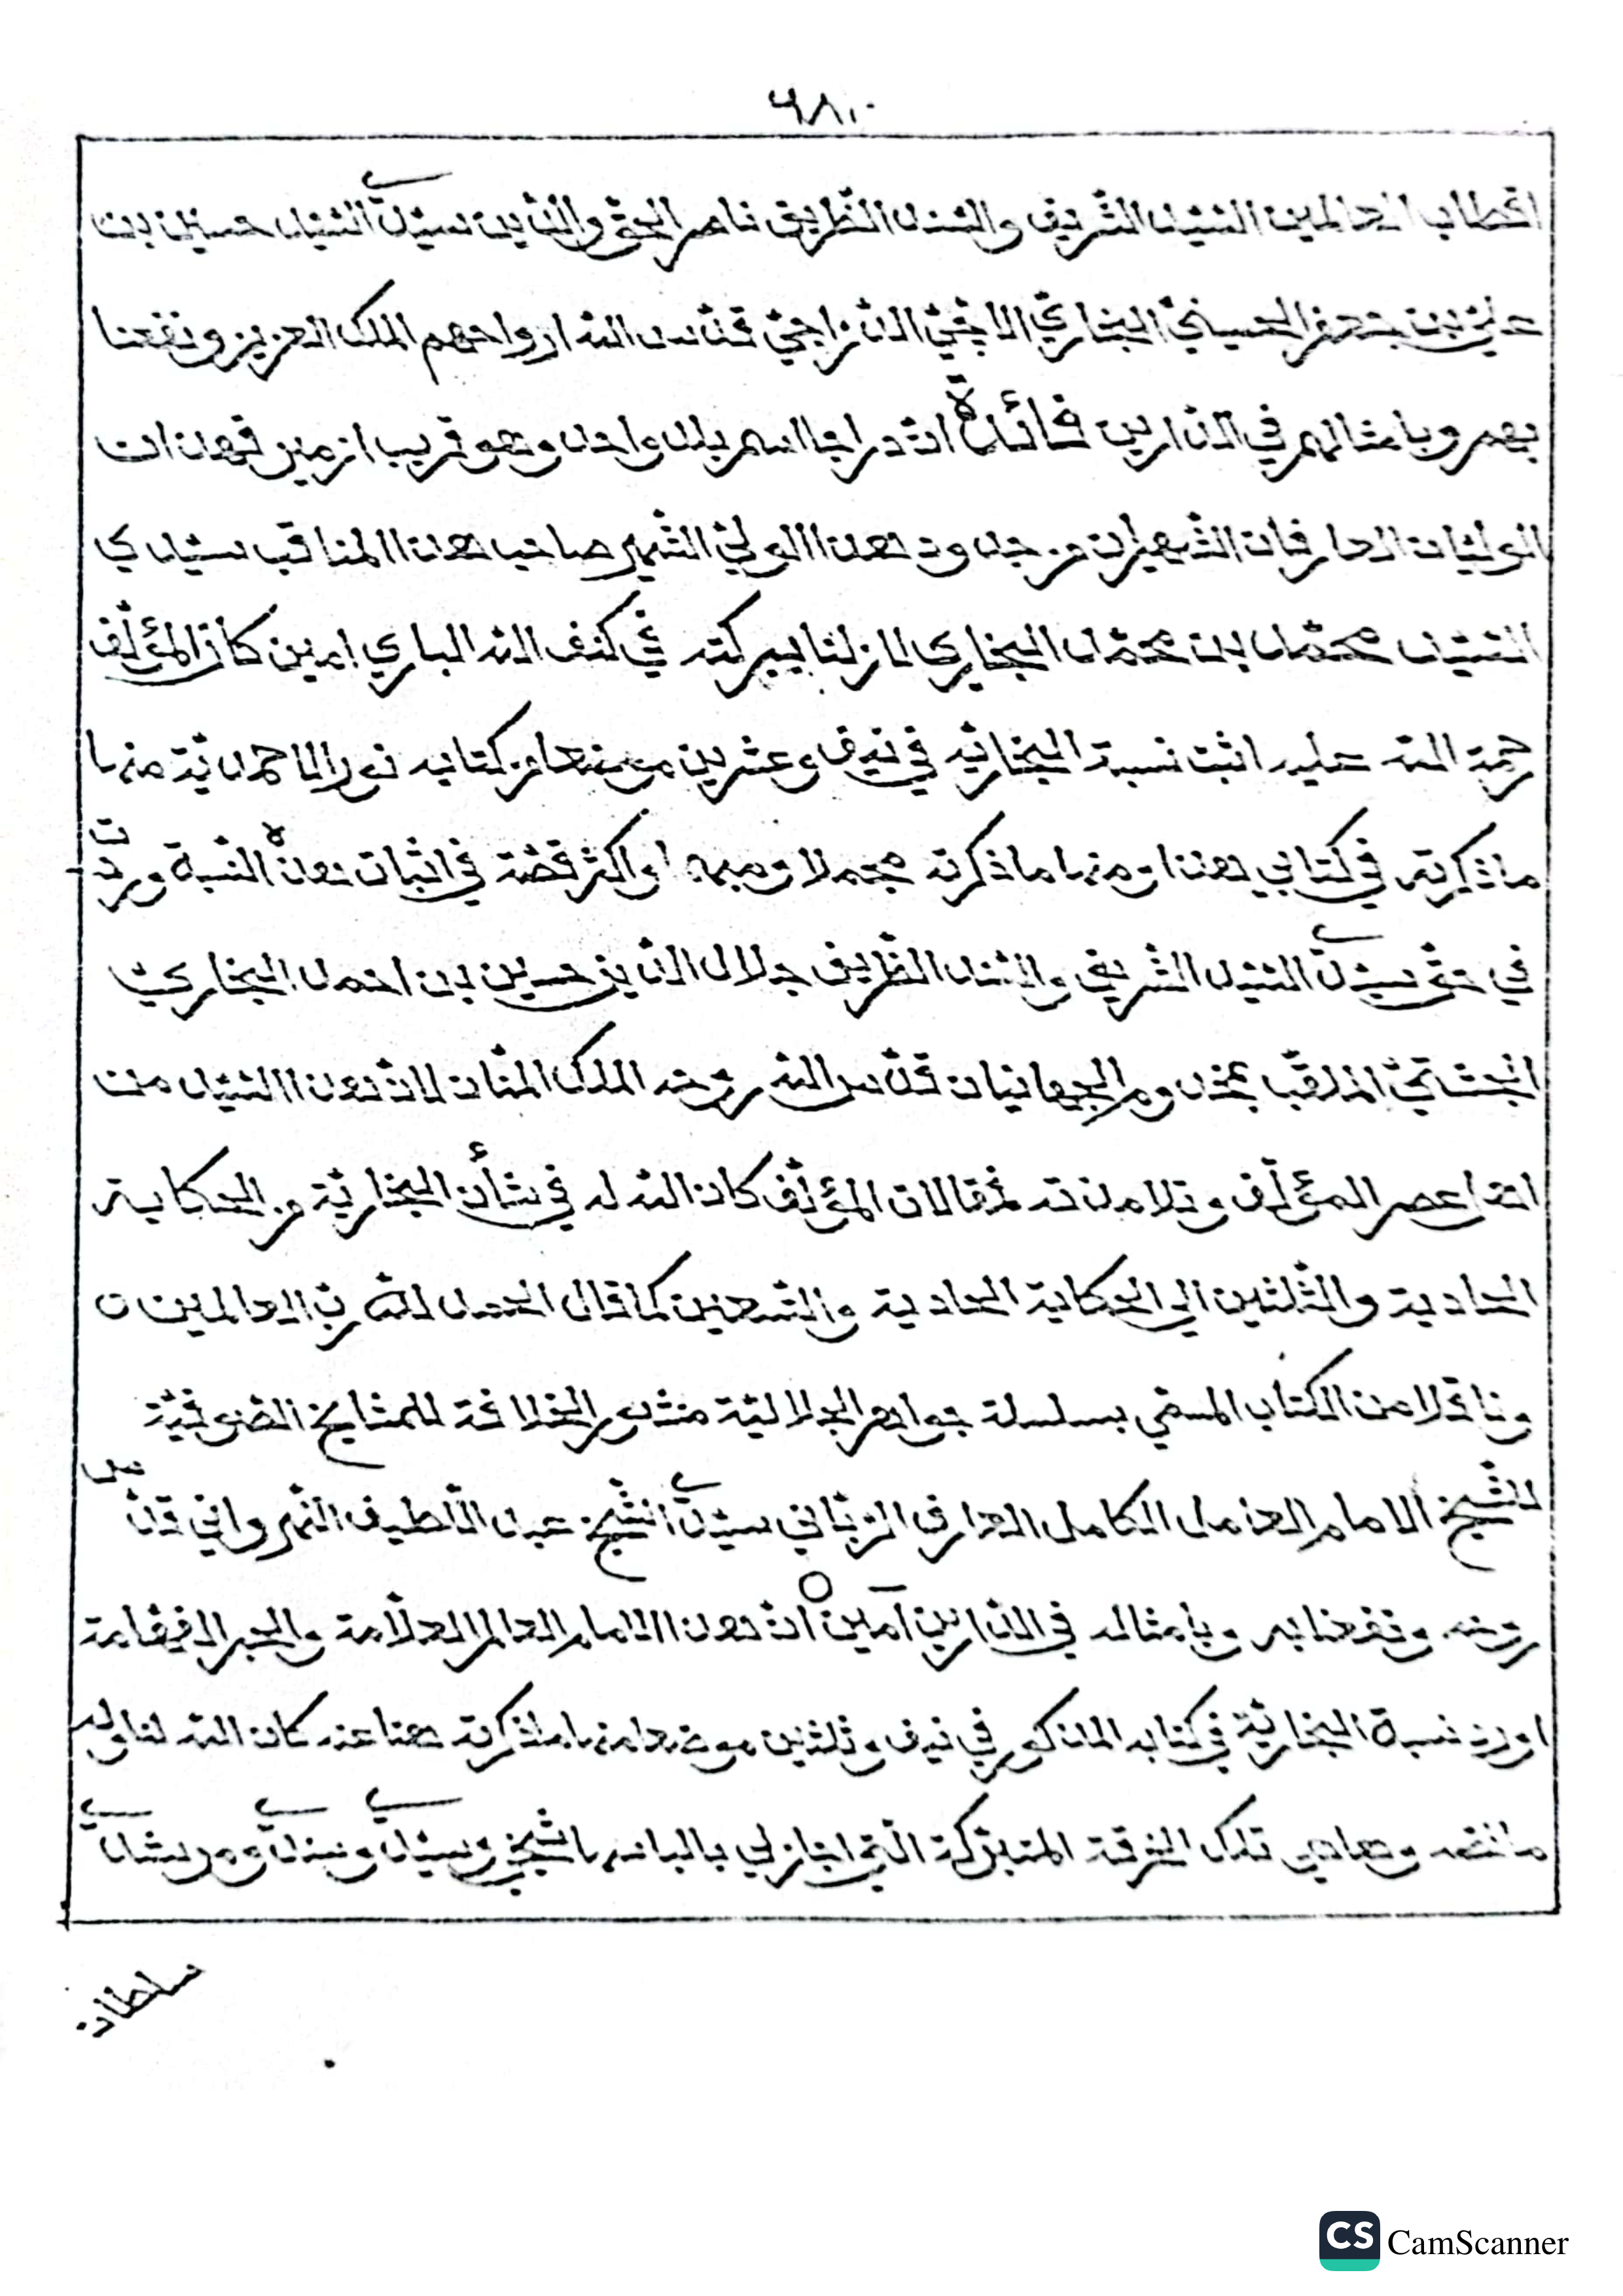 ٦٨٠
اقطاب العالمين السّيّد الشّريف والسّند الظّريف ناصر الحقّ والدّين سيّدي السّيّد حسين بن
عليّ بن جعفر الحسينيّ البخاريّ الاجّيّ الانداجيّ قدّس الله ارواحهم الملك العزيز ونفعنا
بهم وبامثالهم في الدّارين فائدة انّ دراجا اسم بلد واحد وهو قريب من فهذان
الوليّان العارفان الشّهيران من جدود هذا الوليّ الشّهير صاحب هذا المناقب سيّدي
السّيّد محمّد بن محمّد البخاري لازلنا ببركته في كنف الله الباري امين كان المؤلّف
رحمة الله عليه اثبت نسبة البخاريّة في نيف وعشرين موضعا من كتابه نور الاحمديّة منها
ما ذكرته في كتابي هذا ومنها ما ذكرته مجملا ومبهما واكثر قصّة في اثبات هذه النّسبة وردت
في حقّ سيّدي السّيّد الشّريف والسّند الظّريف جلال الدّين حسين بن احمد البخاريّ
الجشتيّ الملقّب بمخدوم الجهانيان قدّس الله روحه الملك المنّان لانّ هذا السّيّد من
اتقا عصر المؤلّف وتلامذته لمقالات المؤلّف كان الله له في شأن البخاريّة من الحكاية
الحادية والثّلثين الي الحكاية الحادية والتّسعين كما قال الحمد للّه ربّ العالمين
وناقلا من الكتاب المسمّي بسلسلة جواهر الجلاليّة منشور الخلافة للمشايخ الصّوفيّة
للشّيخ الامام العامل الكامل العارف الرّبّاني سيّدي الشّيخ عبد اللّطيف النّهرواني قدّس
روحه ونفعنا به وبامثاله في الدّارين آمين انّ هذا الامام العالم العلّامة والحبر الفهّامة
اورد نسبة البخاريّة في كتابه المذكور في نيف وثلثين موضعا منها ما ذكرته هنا عنه كان الله لنا وله
ما نصّه وها هي تلك الخرقة المتبرّكة الّتي اجاز لي بالباسها شيخي وسيّدي وسندي ومرشدي
سلطان
CS CamScanner